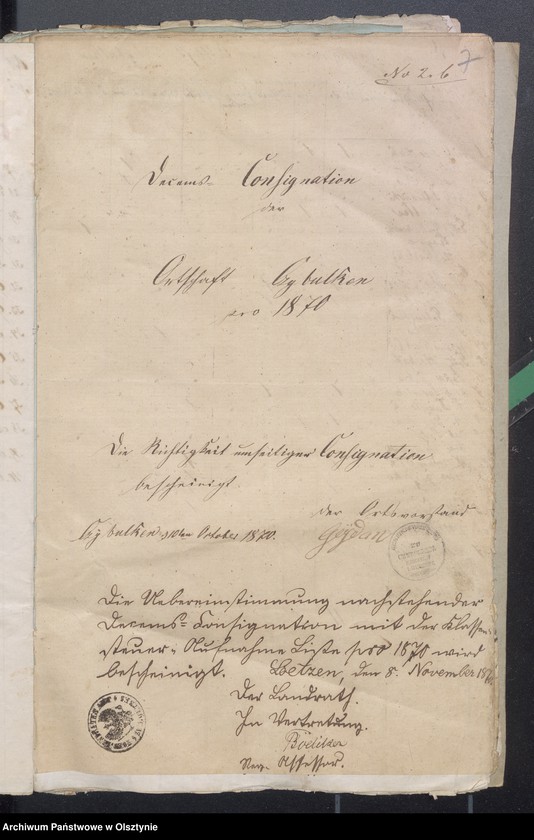 No 2. 6 7
Decems- Consignation
der
Ortschaft Czybulken
pro 1870
Die Richtigkeit umseitiger Consignation
bescheinigt.
der Ortsvorstand
Czybulken, October 1870.
Die Uebereinstimmung nachstehender
Decems-Consignation mit der Klassen-
steuer-Aufnahme Liste pro 1870 wird
bescheinigt. Loetzen, den 8. November 1870
Der Landrath.
In Vertretung.
Reg. Assessor.
Archiwum Państwowe w Olsztynie